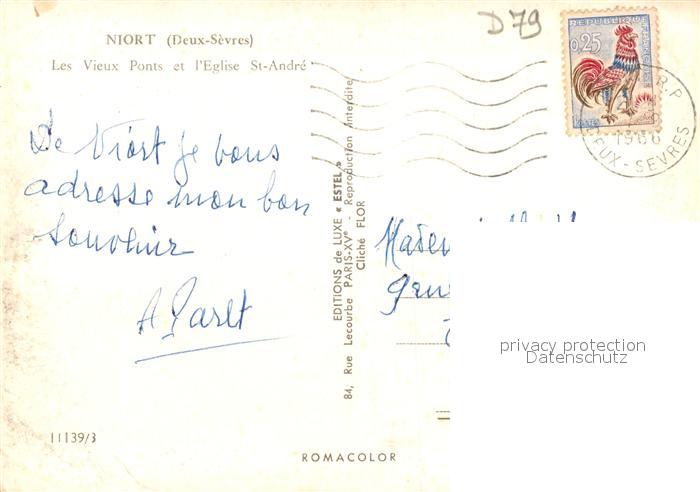 NIORT (Deux-Sèvres)
Les Vieux Ponts et l'Eglise St-André
D79
REPUBLIQUE FRANÇAISE
0,25
POSTES
R.P
1966
DEUX-SEVRES
De Niort je vous
adresse mon bon
souvenir
A Paret
EDITIONS de LUXE « ESTEL »
84, Rue Lecourbe PARIS-XVe - Reproduction interdite
Cliché FLOR
privacy protection
Datenschutz
11139/3
ROMACOLOR